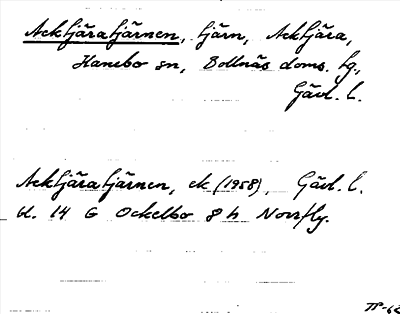 Acktjäratjärnen, tjärn, Acktjära,
Hanebo sn, Bollnäs doms. hg.,
Gävl. l.
Acktjäratjärnen, ek (1958), Gävl. l.
bl. 14 G Ockelbo 8 h Norrfly.
TP-62